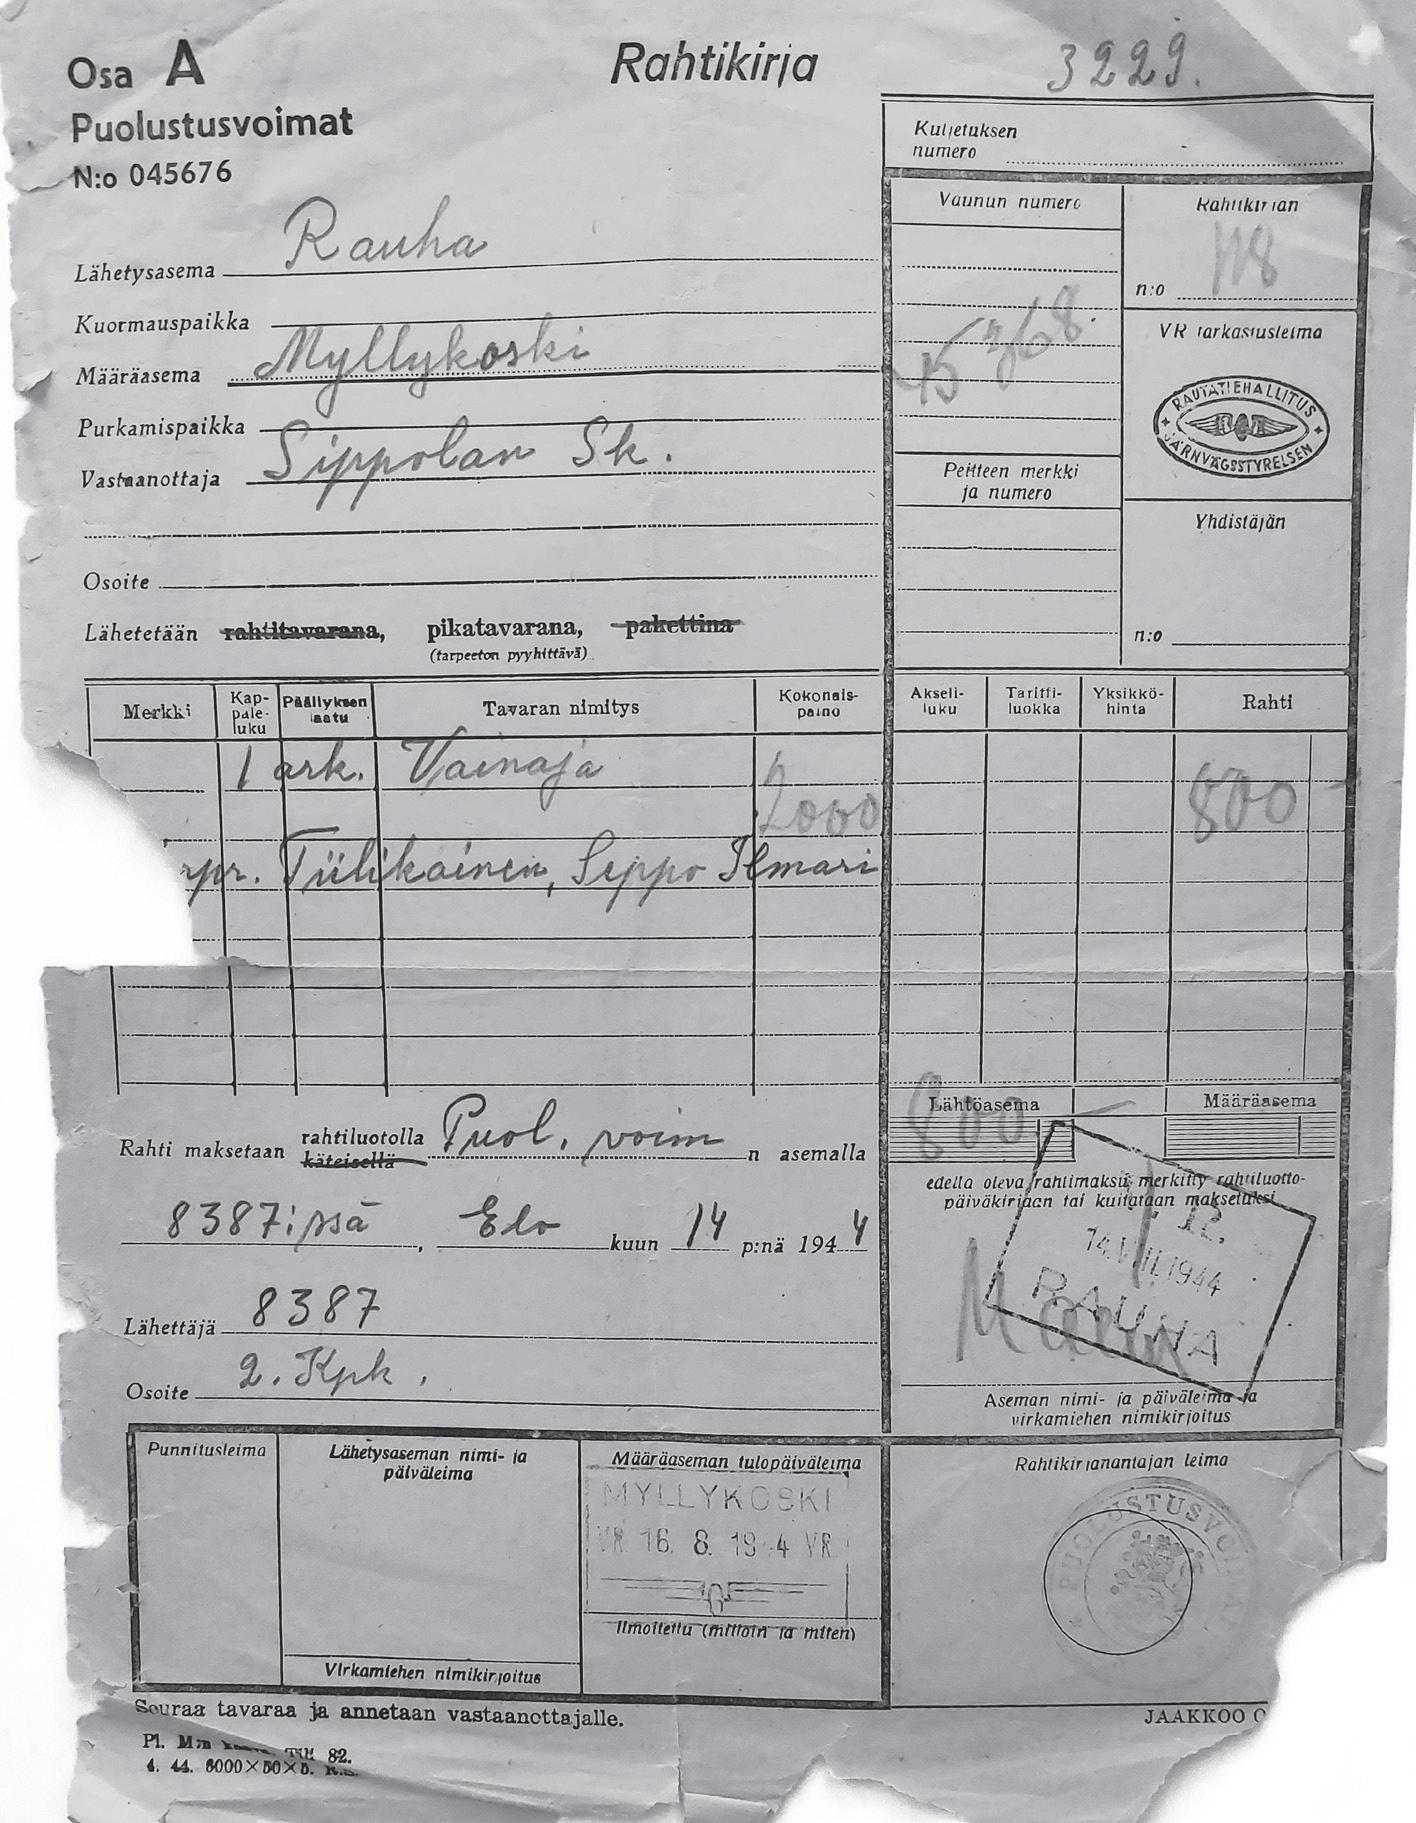 Osa A
Rahtikirja
3229.
Puolustusvoimat
N:o 045676
Kuljetuksen
numero
Lähetysasema Rauha
Kuormauspaikka
Määräasema Myllykoski
Purkamispaikka
Vastaanottaja Sippolan Sk.
Osoite
Lähetetään rahtitavarana, pikatavarana, pakettina
(tarpeeton pyyhittävä)
Vaunun numero
45368.
Peitteen merkki
ja numero
Rahtikirjan
n:o 118
VR tarkastusleima
RAUTATIEHALLITUS
JÄRNVÄGSSTYRELSEN
Yhdistäjän
n:o
Merkki Kap-paleluku Päällyksen laatu Tavaran nimitys Kokonais-paino Akseli-luku Tariffi-luokka Yksikkö-hinta Rahti
1 ark. Vainaja
2000 800 -
Tiilikainen, Seppo Ilmari
Lähtöasema Määräasema
800
Rahti maksetaan rahtiluotolla käteisellä Puol. voim n asemalla
8387:ssä, Elo kuun 14 p:nä 1944
Lähettäjä 8387
Osoite 2. Kpk.
edellä oleva rahtimaksu merkitty rahtiluotto-
päiväkirjaan tai kuitataan maksetuksi
12.
14.VIII.1944
RAUHA
Aseman nimi- ja päiväleima ja
virkamiehen nimikirjoitus
Punnitusleima
Lähetysaseman nimi- ja
päiväleima
Virkamiehen nimikirjoitus
Määräaseman tulopäiväleima
MYLLYKOSKI
VR 16. 8. 19 4 VR
Ilmoitettu (milloin ja miten)
Rahtikirjanantajan leima
PUOLUSTUSVOIMAT
Seuraa tavaraa ja annetaan vastaanottajalle.
JAAKKOO O
Pl. M:n 82.
4. 44. 6000×50×5. R.S.